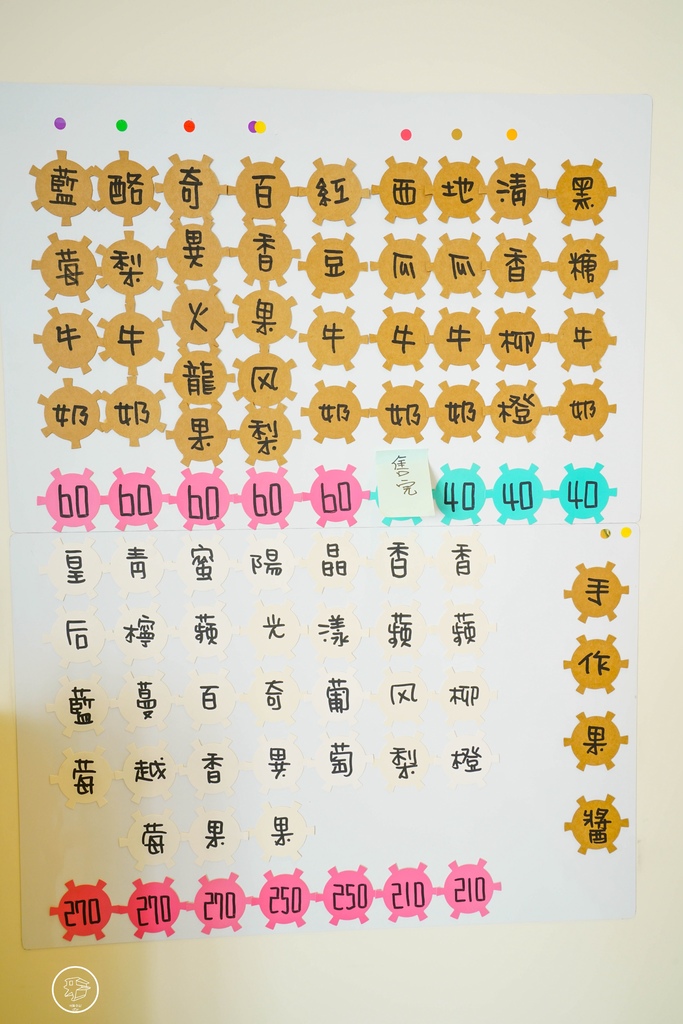 藍莓牛奶
60
酪梨牛奶
60
奇異火龍果
60
百香果风梨
60
紅豆牛奶
60
西瓜牛奶
售完
地瓜牛奶
40
清香柳橙
40
黑糖牛奶
40
手作果醬
皇后藍莓
270
青檸蔓越莓
270
蜜蘋百香果
270
陽光奇異果
250
晶漾葡萄
250
香蘋风梨
210
香蘋柳橙
210